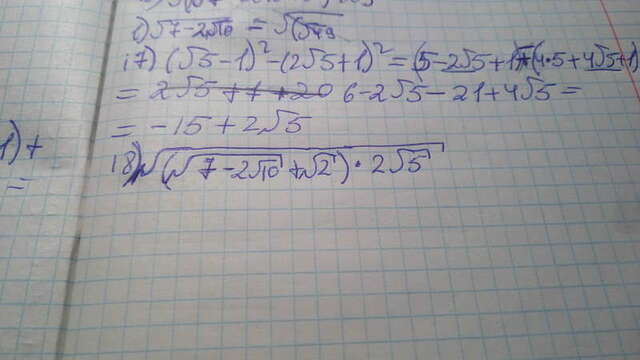 √7-2√10 = √(√49
17) (√5-1)² - (2√5+1)² = (5-2√5+1)-(4·5+4√5+1)
= 2√5 +1 +20 6-2√5-21+4√5 =
= -15+2√5
1)+
18) √(√7-2√10+√2)·2√5
=